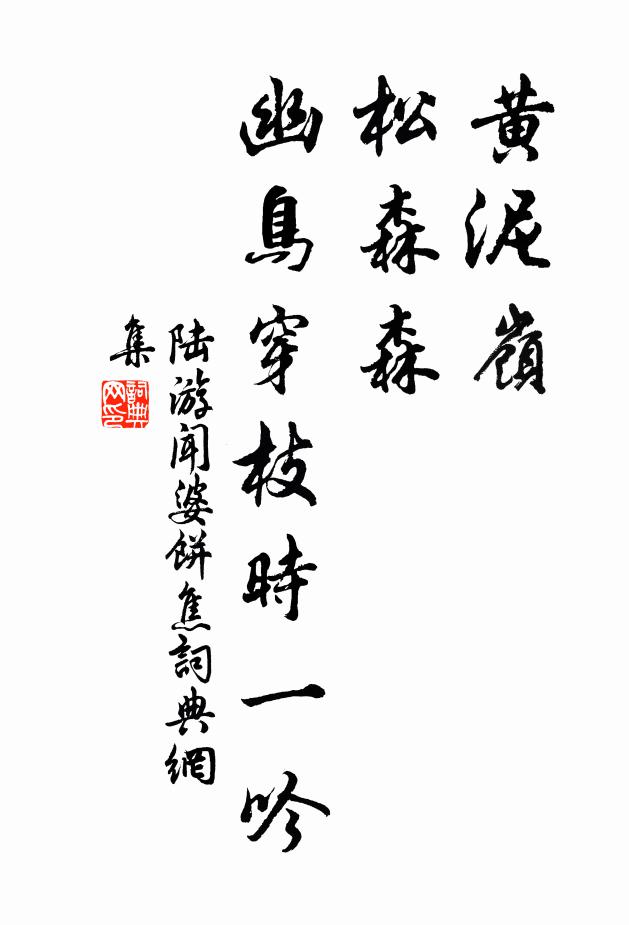 黄泥嶺
松森森
幽鳥穿枝時一吟
陆游闻婆餅焦詞典網
集
詞典
网印